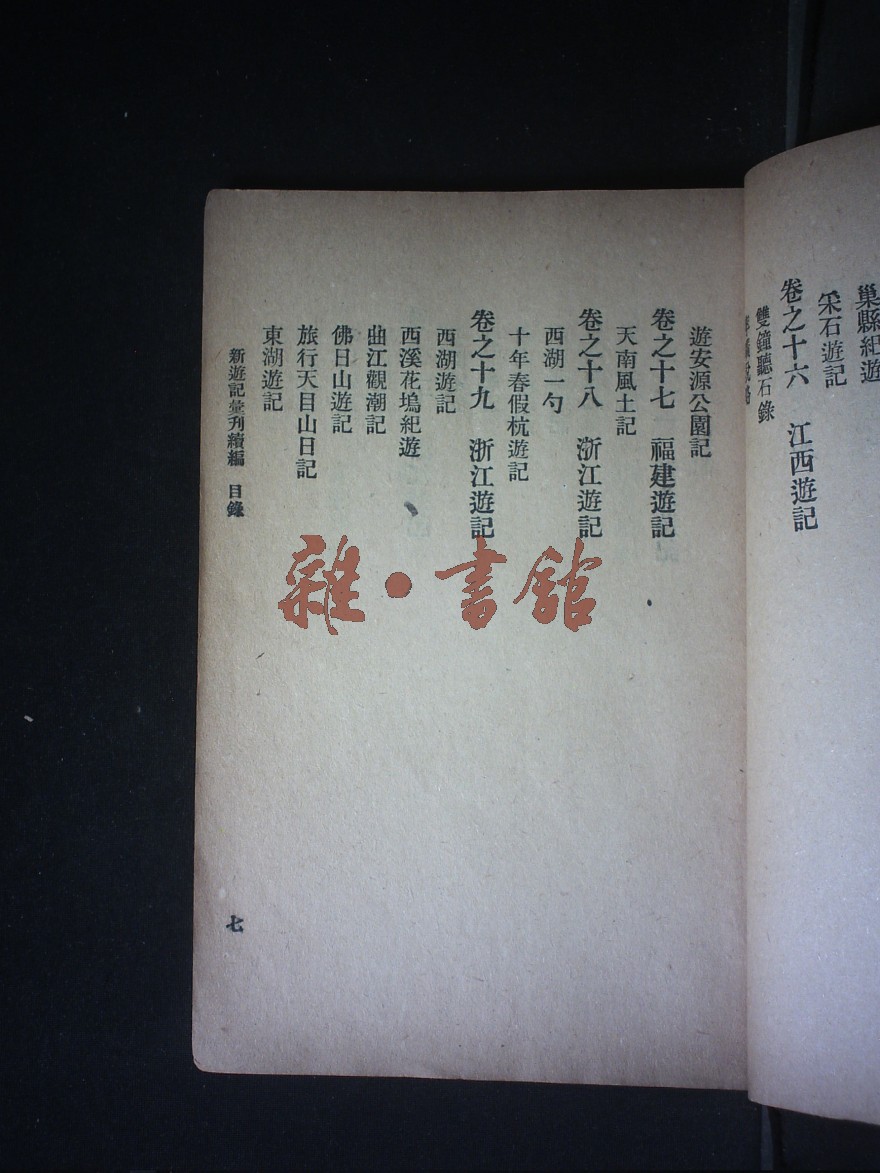 巢縣紀遊
采石遊記
卷之十六　江西遊記
雙鐘聽石錄
遊安源公園記
卷之十七　福建遊記
天南風土記
卷之十八　浙江遊記
西湖一勺
十年春假杭遊記
卷之十九　浙江遊記
西湖遊記
西溪花塢紀遊
曲江觀潮記
佛日山遊記
旅行天目山日記
東湖遊記
新遊記彙刋續編　目錄
七
雜·書館